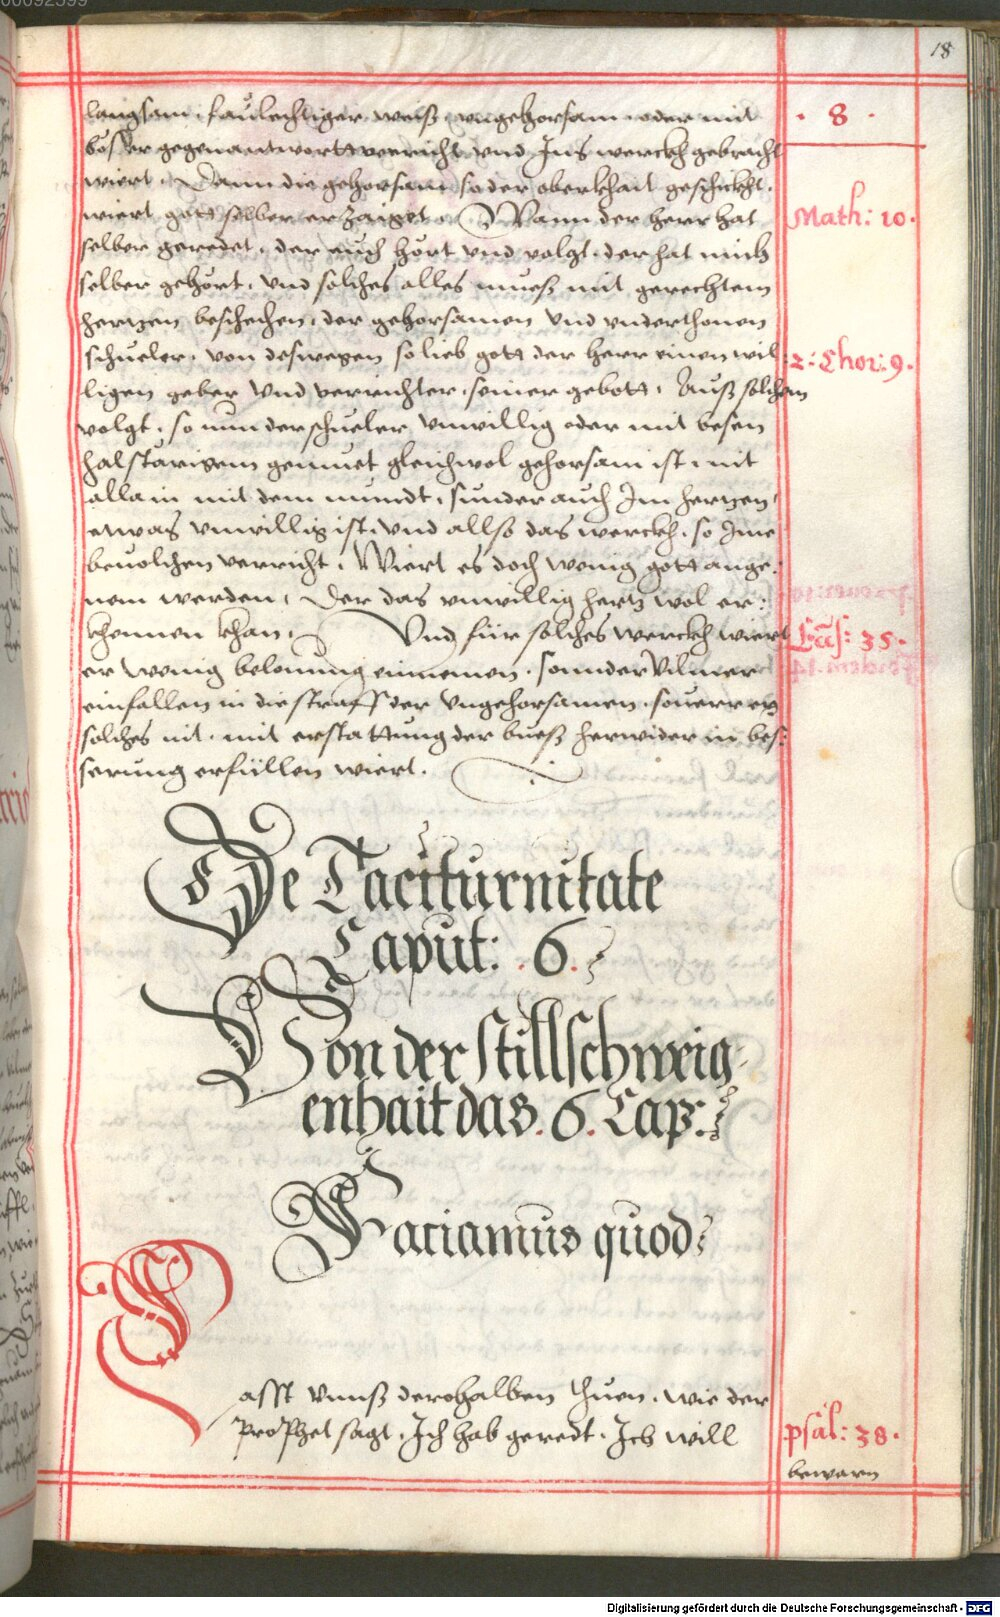 00092599
18
langsam, faulechtiger weiß, ungehorsam oder mit
böser gegenantwortt verricht und Ins werckh gebracht
wiert. Dann die gehorsam so der oberkhait geschickht.
wiert gott selber erzaiget. Wann der herr hat
selber geredet. der euch hört und volgt. der hat mich
selber gehört. Und solches alles mueß mit gerechtem
hertzen beschechen, der gehorsamen Und underthonen
schueler. von deswegen so lieb gott der herr einen wil-
ligen geber Und verrichter. seiner gebott. Auß solchem
volgt. so nun der schueler Unwillig oder mit besen
halstarigem gemuet gleichwol gehorsam ist, nit
allain mit dem mundt, sunder auch Im hertzen,
etwas Unwillig ist, Und allso das werckh. so Ime
bevolchen verricht. Wiert es doch wenig gott ange-
nem werden, Der das unwillig hertz wol er:
khennen khan. Und für solches werckh wiert
er wenig belonung einnemen. sonnder Vilmer
einfallen in die straff der Ungehorsamen, souerr er
solches nit. mit erstattung der bueß herwider in bes:
serung erfüllen wiert.
8
Math: 10.
2: Chor: 9.
Ecc͠s: 35.
De Taciturnitate
Caput: .6.
Von der stillschweig-
enhait das .6. Cap:
Faciamus quod
Lasst Unnß derohalben thuen. wie der
Prophet sagt. Ich hab geredt. Ich will
psal: 38.
bewarn
Digitalisierung gefördert durch die Deutsche Forschungsgemeinschaft - DFG